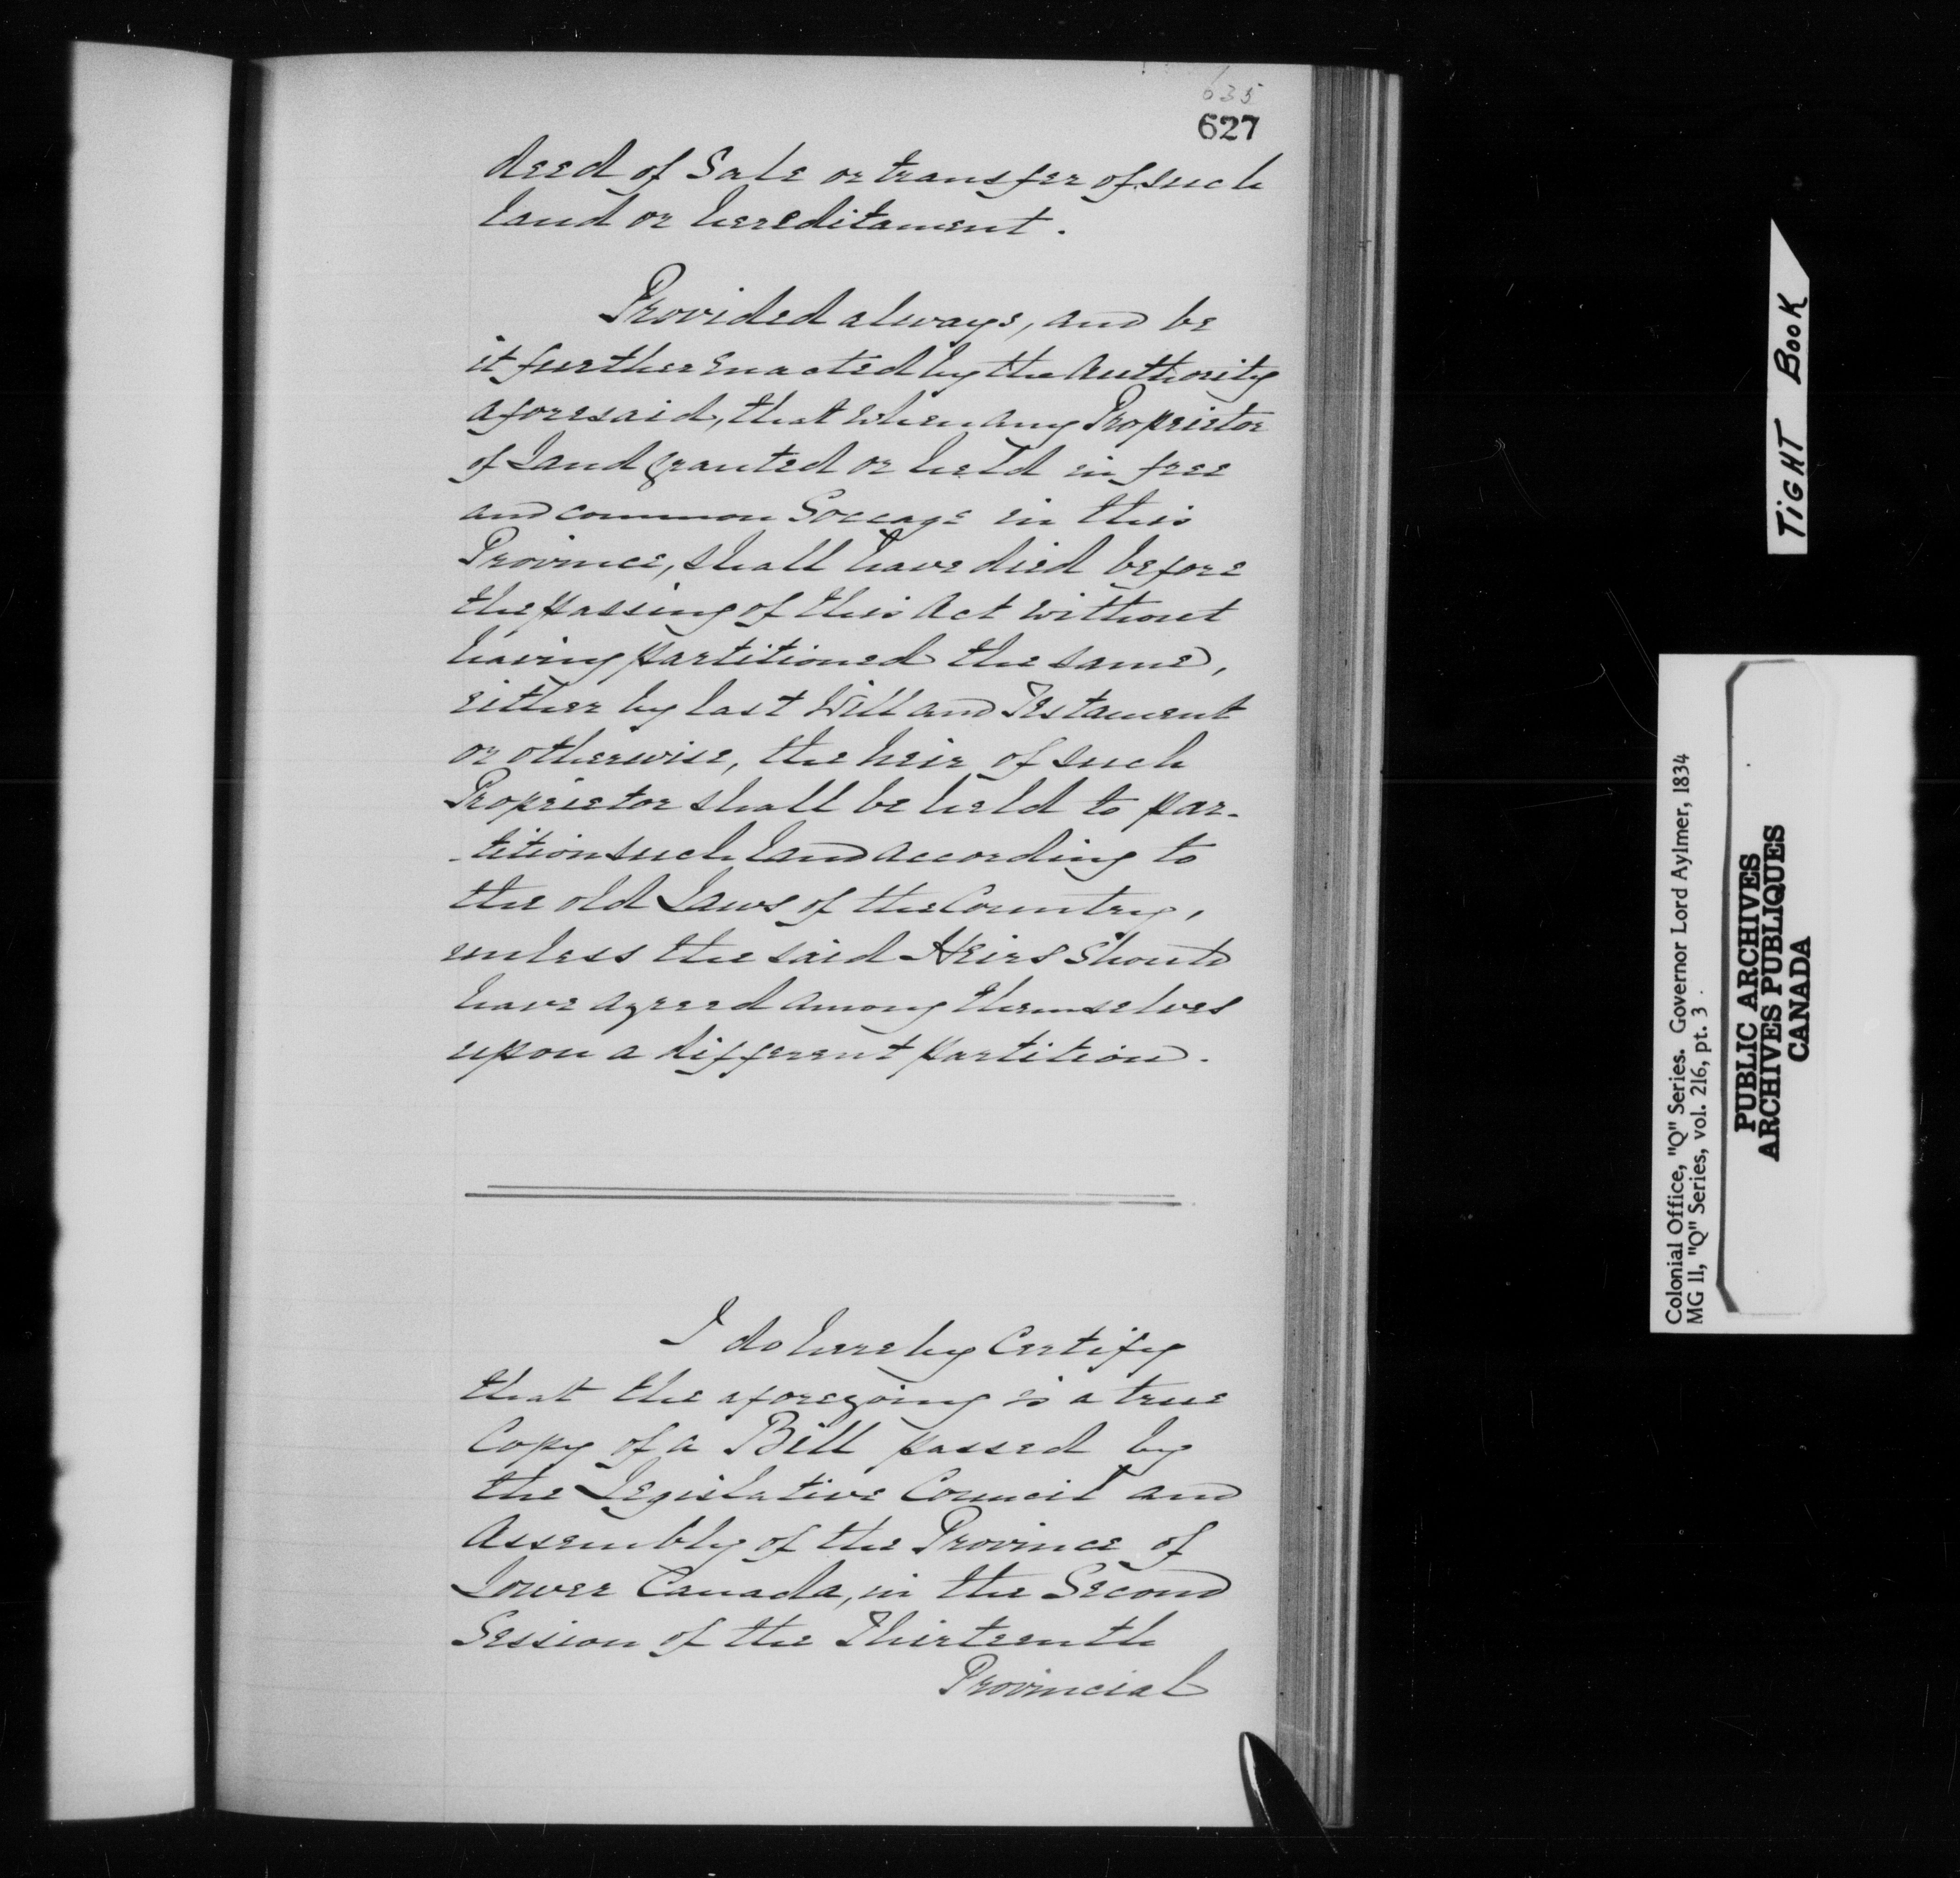 635
627
deed of Sale or transfer of such
land or hereditament.
Provided always, and be
it further Enacted by the Authority
aforesaid, that when any Proprietor
of Land granted or held in free
and common Soccage in this
Province, shall have died before
the passing of this Act without
having partitioned the same,
either by last Will and Testament
or otherwise, the heir of such
Proprietor shall be held to par-
-tition such land according to
the old Laws of the Country,
unless the said Heirs should
have agreed among themselves
upon a different partition.
I do hereby Certify
that the aforegoing is a true
Copy of a Bill passed by
the Legislative Council and
Assembly of the Province of
Lower Canada, in the Second
Session of the Thirteenth
Provincial
TIGHT BOOK
Colonial Office, "Q" Series. Governor Lord Aylmer, 1834
MG 11, "Q" Series, vol. 216, pt. 3
PUBLIC ARCHIVES
ARCHIVES PUBLIQUES
CANADA